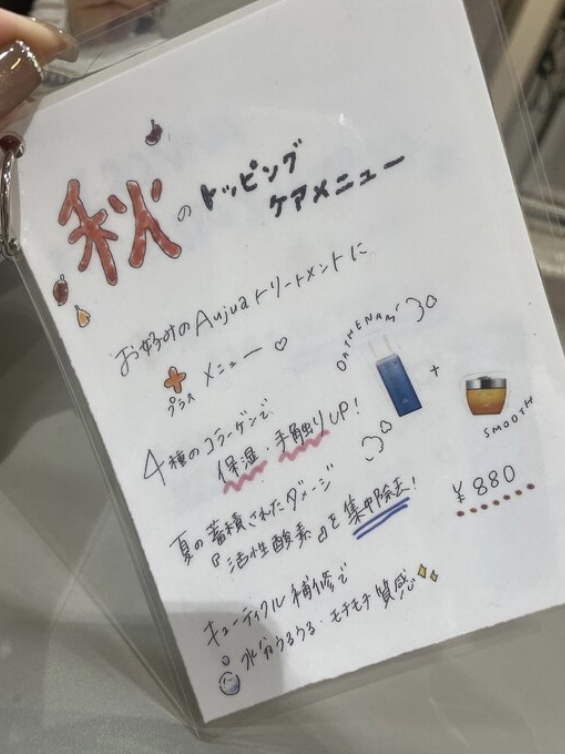 秋の トッピング
ケアメニュー
お好みのAujuaトリートメントに
プラス メニュー♡
4種のコラーゲンで
保湿・手触りUP!
夏の蓄積されたダメージ
『活性酸素』を集中除去!
キューティクル補修で
水分うるうる・モチモチ質感
+
SMOOTH
¥880